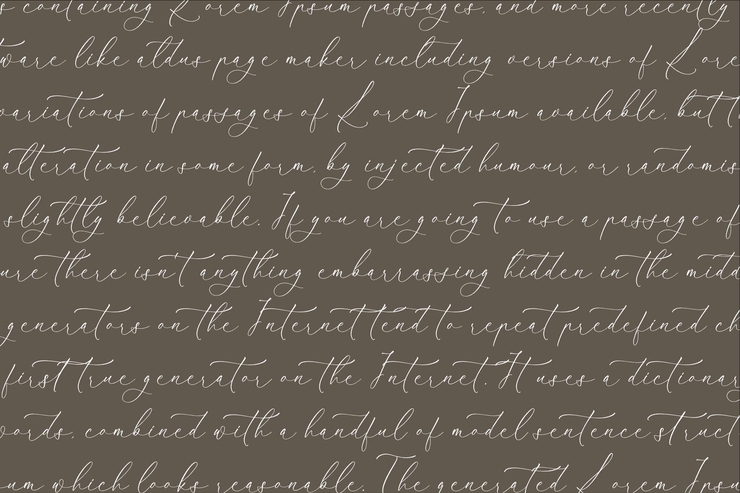 s containing Lorem Ipsum passages, and more recently
tware like aldus page maker including versions of Lore
variations of passages of Lorem Ipsum available, but t
alteration in some form, by injected humour, or randomis
slightly believable. If you are going to use a passage of
ure there isn't anything embarrassing hidden in the midd
generators on the Internet tend to repeat predefined ch
first true generator on the Internet. It uses a dictionar
words, combined with a handful of model sentence struct
um which looks reasonable. The generated Lorem Ipsu